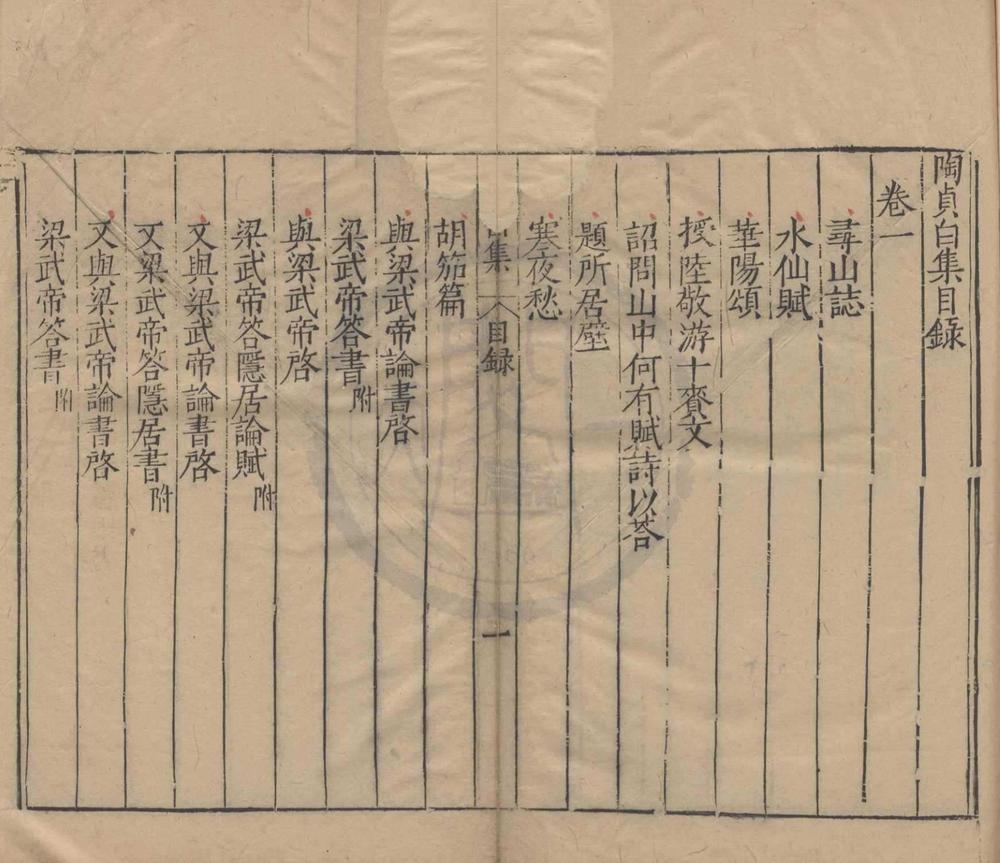 陶貞白集目錄
卷一
尋山誌
水仙賦
華陽頌
授陸敬游十賚文
詔問山中何有賦詩以荅
題所居壁
寒夜愁
集 目録 一
胡笳篇
與梁武帝論書啓
梁武帝答書附
與梁武帝啓
梁武帝答隱居論賦附
又與梁武帝論書啓
又梁武帝答隱居書附
又與梁武帝論書啓
梁武帝答書附